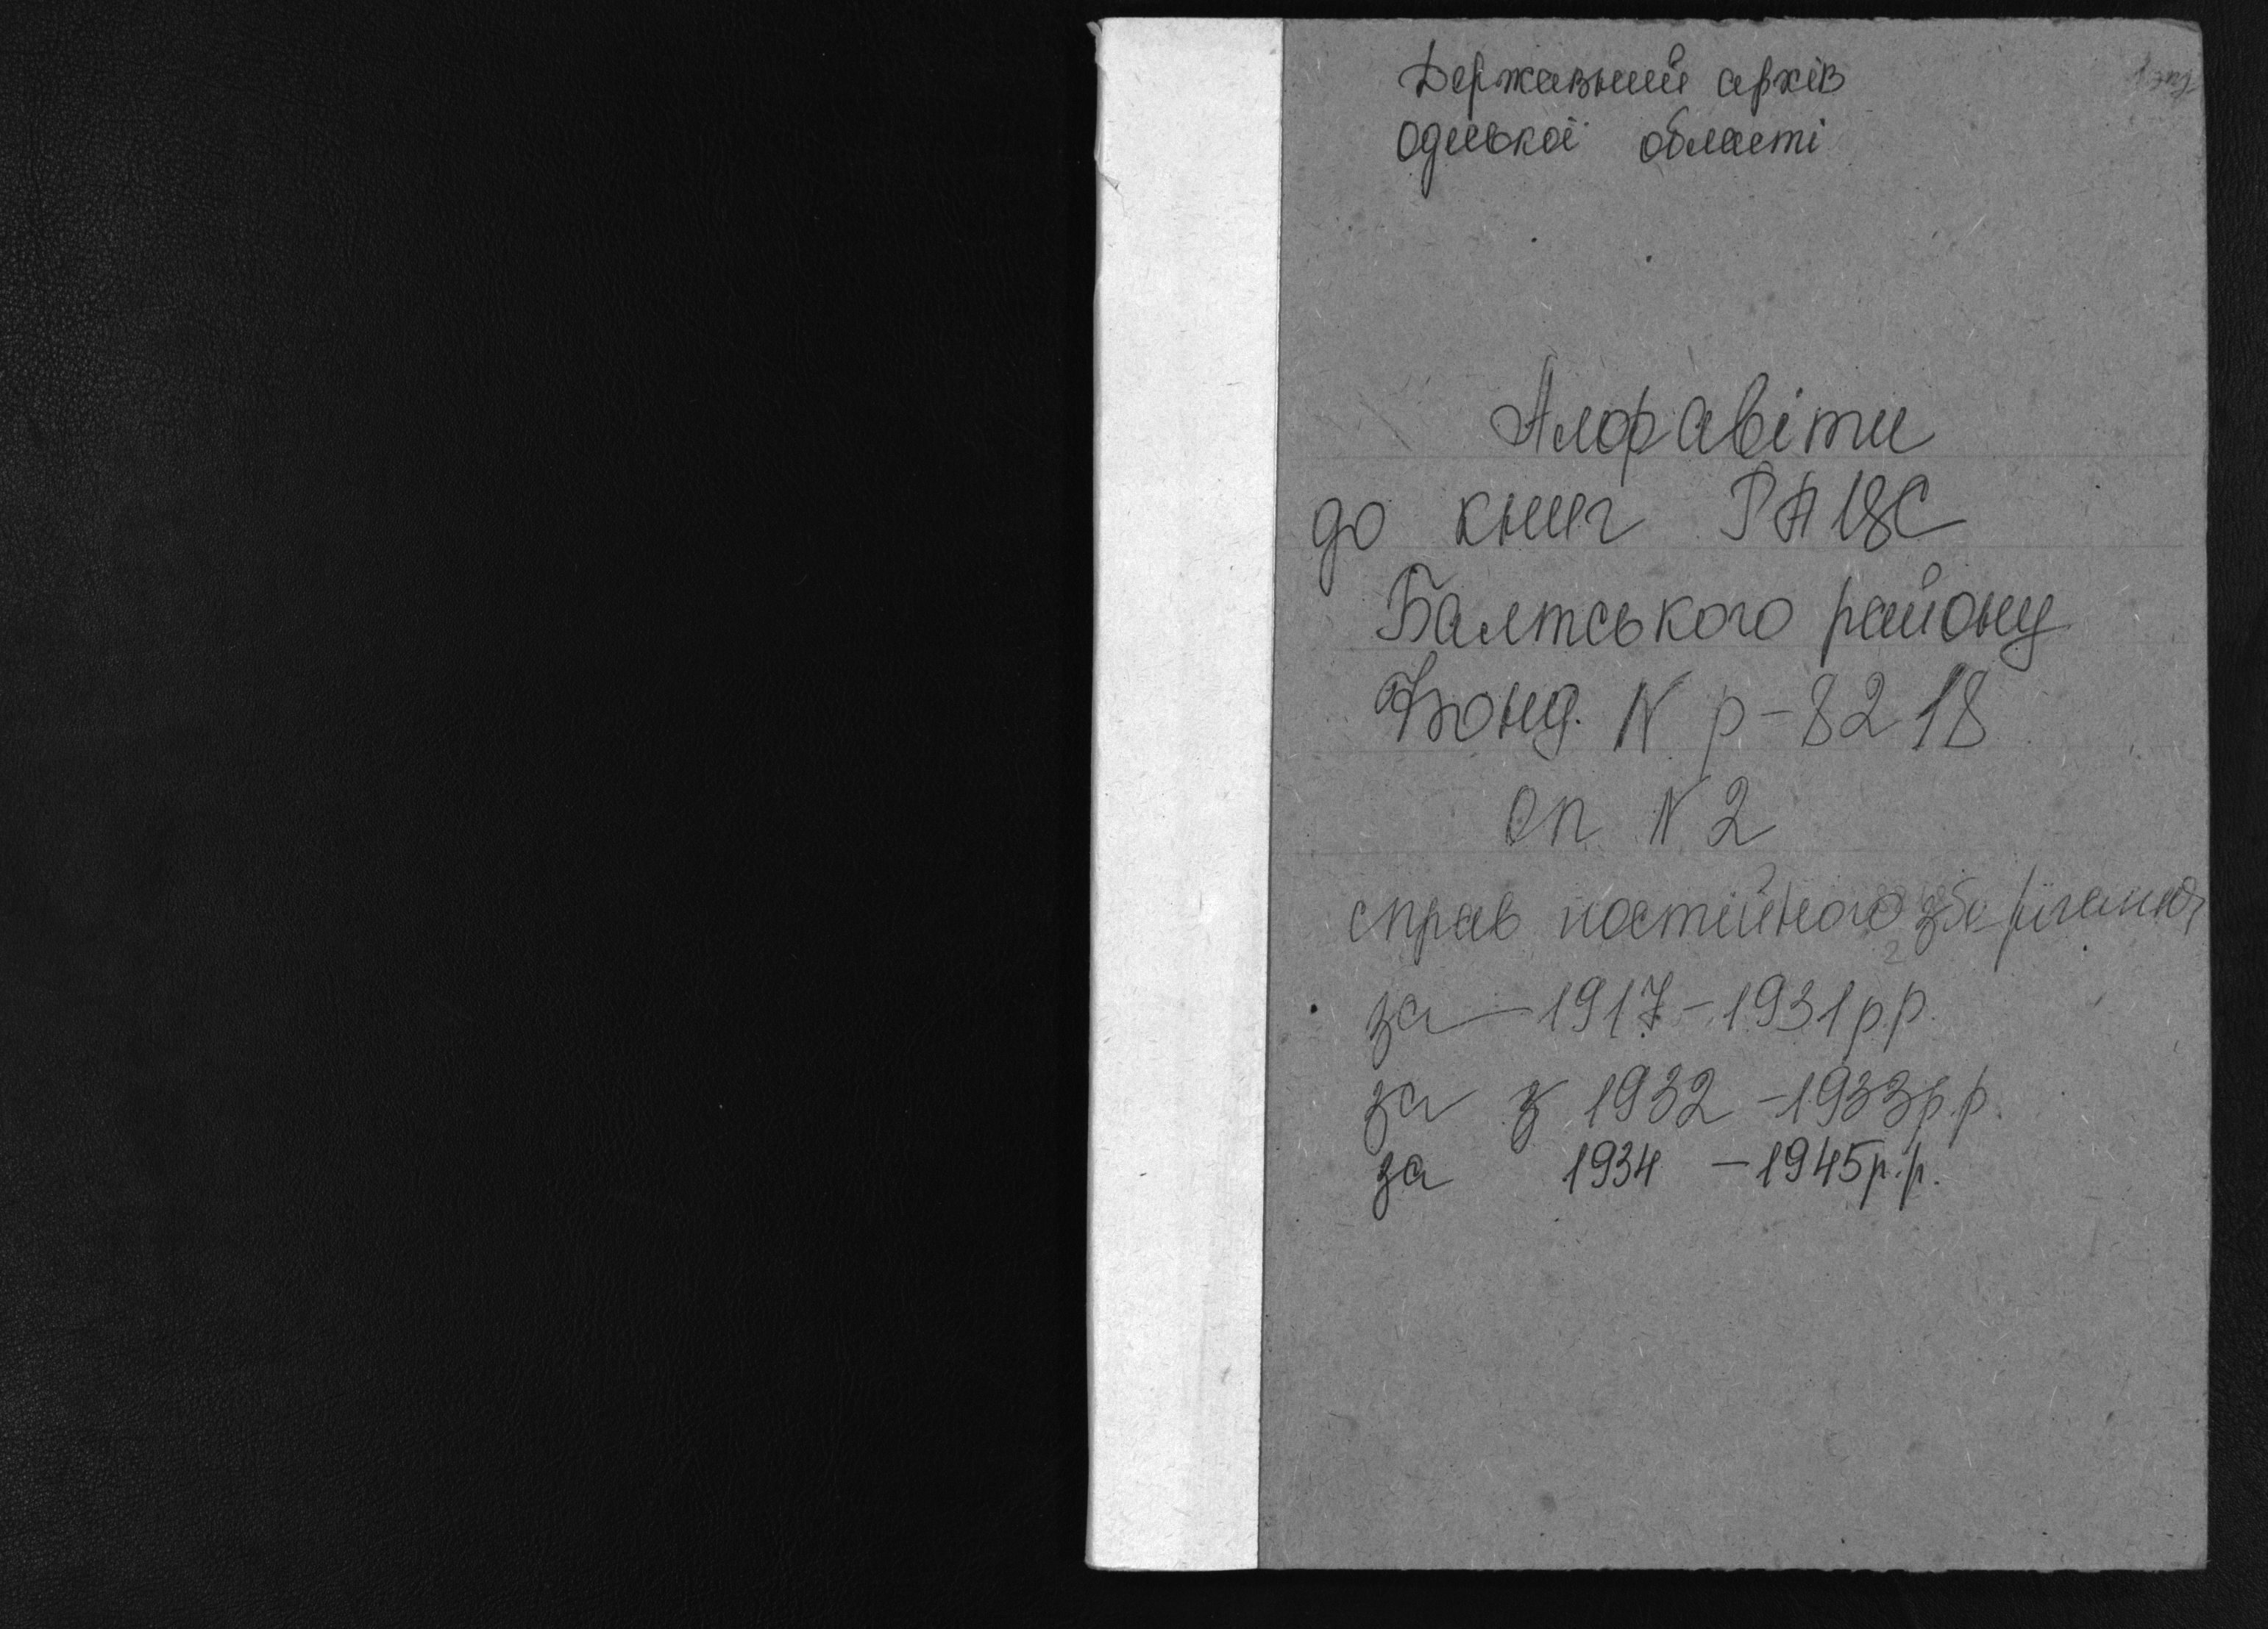 Державний архів
Одеської області
Алфавіти
до книг РАЦС
Балтського району
Фонд N р-8218
оп N 2
справ постійного зберігання
за 1917-1931р.р.
за з 1932-1933р.р.
за 1934-1945р.р.